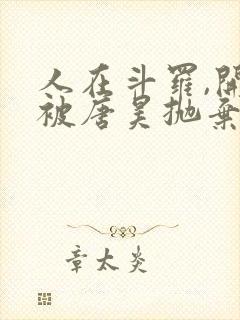 人在斗羅,開
被唐昊抛棄
章太炎